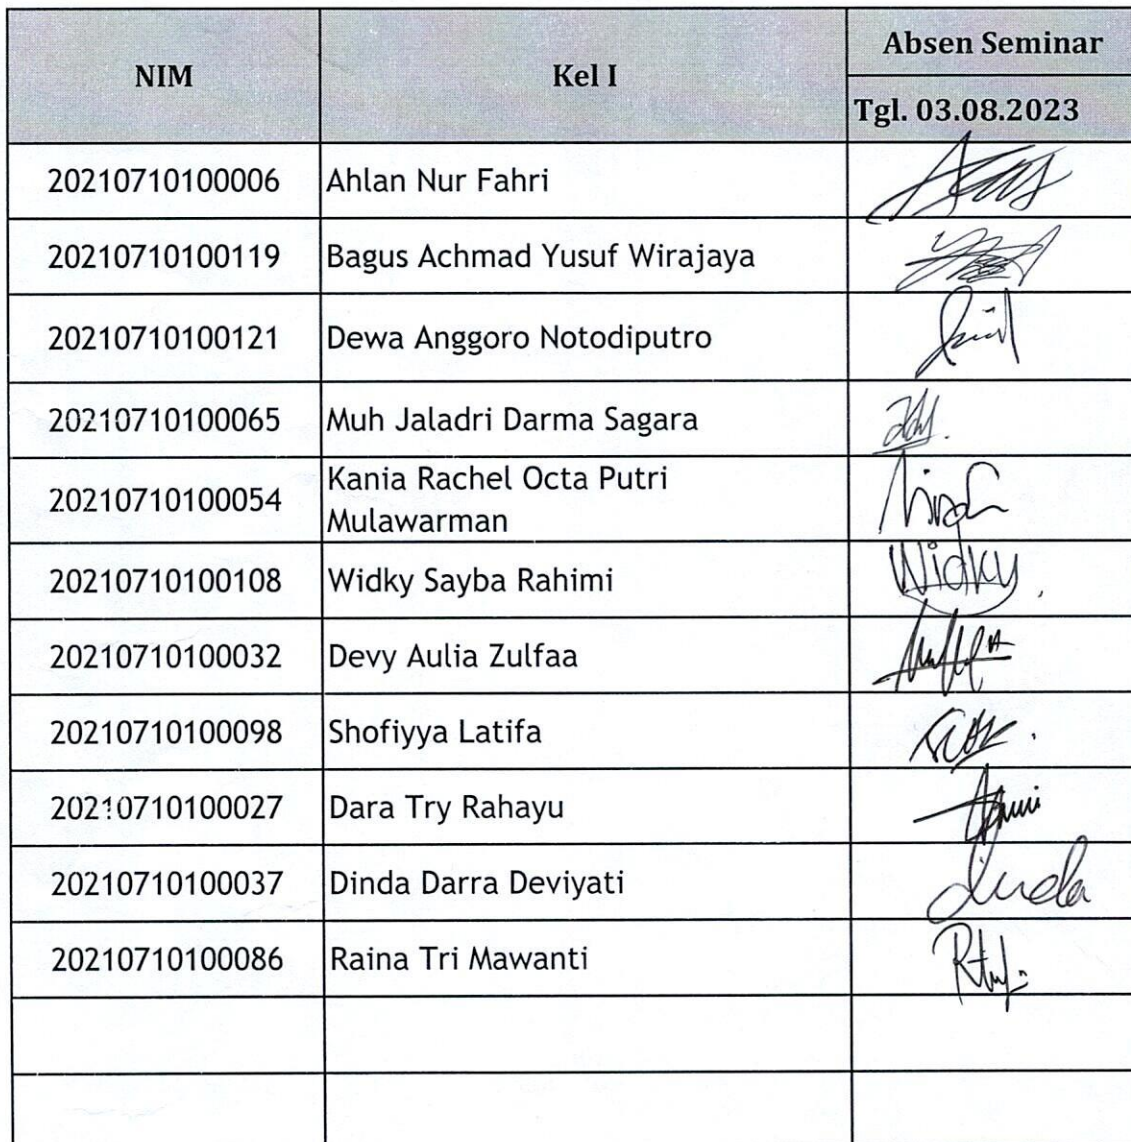 NIM Kel I Absen Seminar
Tgl. 03.08.2023
20210710100006 Ahlan Nur Fahri
20210710100119 Bagus Achmad Yusuf Wirajaya
20210710100121 Dewa Anggoro Notodiputro
20210710100065 Muh Jaladri Darma Sagara
20210710100054 Kania Rachel Octa Putri
Mulawarman
20210710100108 Widky Sayba Rahimi Widky
20210710100032 Devy Aulia Zulfaa
20210710100098 Shofiyya Latifa
20210710100027 Dara Try Rahayu
20210710100037 Dinda Darra Deviyati dinda
20210710100086 Raina Tri Mawanti